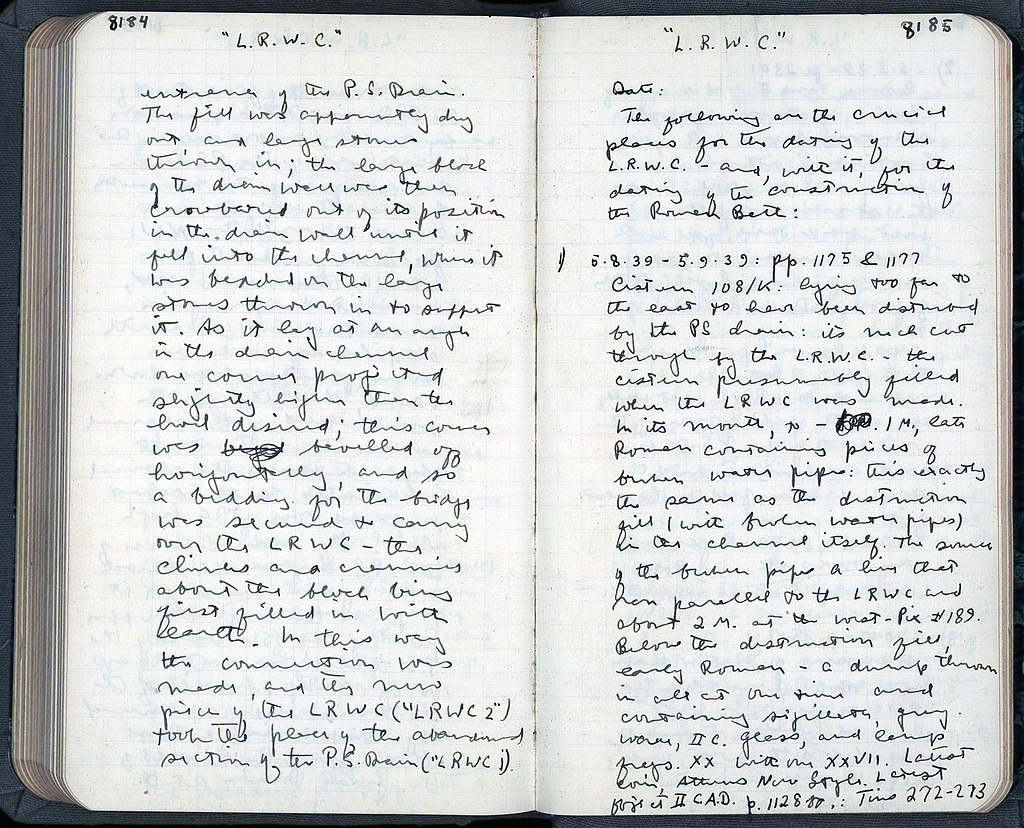 8184
"L.R.W.C."
entrance of the P.S. Drain.
The fill was apparently dug
out and large stones
thrown in; the large block
of the drain wall was then
crowbarred out of its position
in the drain wall until it
fell into the channel, where it
was bedded on the large
stones thrown in to support
it. As it lay at an angle
in the drain channel
one corner projected
slightly higher than the
level desired; this corner
was bevelled off
horizontally, and so
a bedding for the bridge
was secured to carry
over the LRWC – the
chinks and crannies
about the block being
first filled in with
earth. In this way
the connection was
made, and the new
piece of the LRWC ("LRWC 2")
took the place of the abandoned
section of the P.S. Drain ("LRWC 1").
8185
"L.R.W.C."
Date:
The following are the crucial
places for the dating of the
L.R.W.C. – and, with it, for the
dating of the construction of
the Roman Bath:
1) 5.8.39 – 5.9.39: pp. 1175 & 1177
Cistern 108/K: lying too far to
the east to have been disturbed
by the PS drain: its neck cut
through by the L.R.W.C. – the
cistern presumably filled
when the LRWC was made.
In its mouth, to – .1 M, late
Roman containing pieces of
broken water pipe: this exactly
the same as the destruction
fill (with broken water pipes)
in the channel itself. The source
of the broken pipe a line that
ran parallel to the LRWC and
about 2 M. at the west – Pix #189.
Below the destruction fill,
early Roman – a dump thrown
in all at one time and
containing sigillata, gray
ware, II C. glass, and lamp
frags. XX with one XXVII. Latest
coin, Athens New Style. Latest
II C A.D. p. 1128 : Tins 272–273